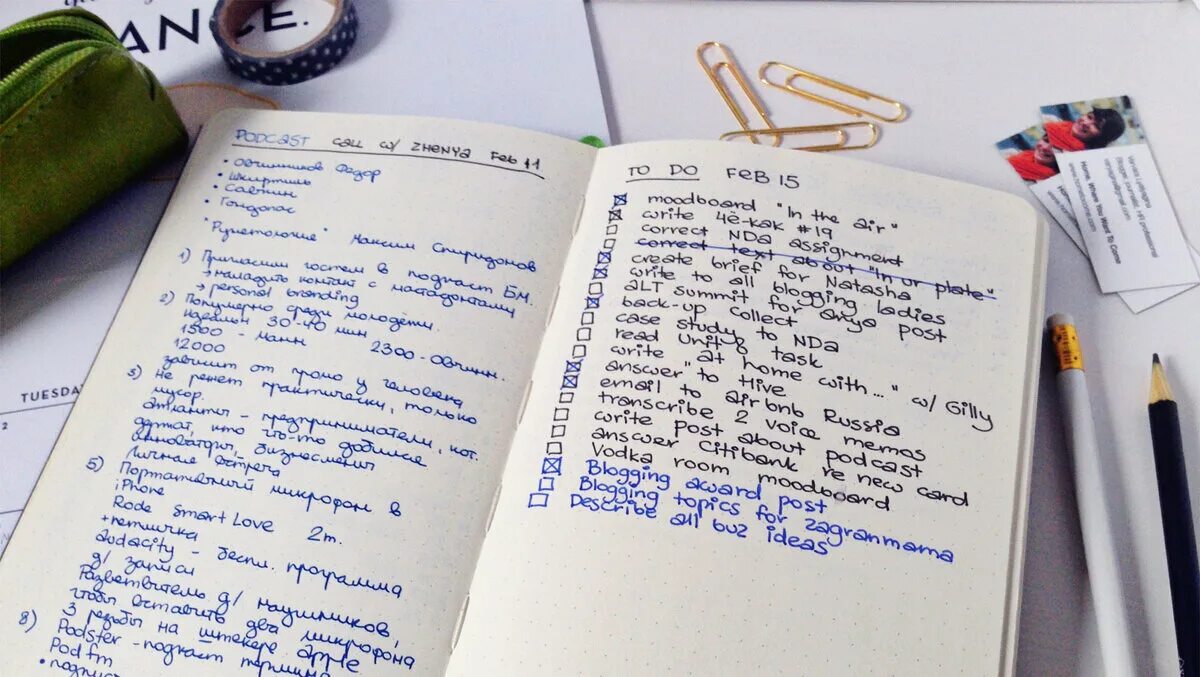 ANCE.
TUESDA
2
PODCAST CALL W/ ZHENYA Feb 11
• Овчинников Федор
• Шкирптиль
• Савкин
• Гондопас
"Рунетология" Максим Спиридонов
1) Приглашали гостем в подкаст БМ.
→ наладить контакт с мастадонтами
→ personal branding
2) Популярно среди молодёжи.
Идеальн 30-40 мин
1500 - манн 2300 - Овчинн.
12000
зависит от промо у человека
3) Не режет практически, только
мусор.
Атланты - предприниматели, кот.
думают, кто что-то добился
инноваторы, бизнесмены
Личная встреча
5) Портативный микрофон в
iPhone
Rode Smart Love 2m.
+ петличка
audacity - беспл. программа
д/ записи
Разветвитель д/ наушников,
чтобы вставить два микрофона
3 резьбы на штекере apple
8) Podster - подкаст терминал
Pod fm
TO DO FEB 15
moodboard "In the air"
write чё-как #19
correct NDA assignment
correct text about "In or plate"
create brief for Natasha
write to all blogging ladies
ALT summit for anya post
back-up collect
case study to NDA
read Unit 8 task
write "at home with..." w/ Gilly
answer to Hive
email to airbnb Russia
transcribe 2 voice memos
write post about podcast
answer Citibank re new card
Vodka room moodboard
Blogging award post
Blogging topics for zagranmama
Describe all buz ideas
Home, Where You Want To Come
Blogger, journalist, HR professional